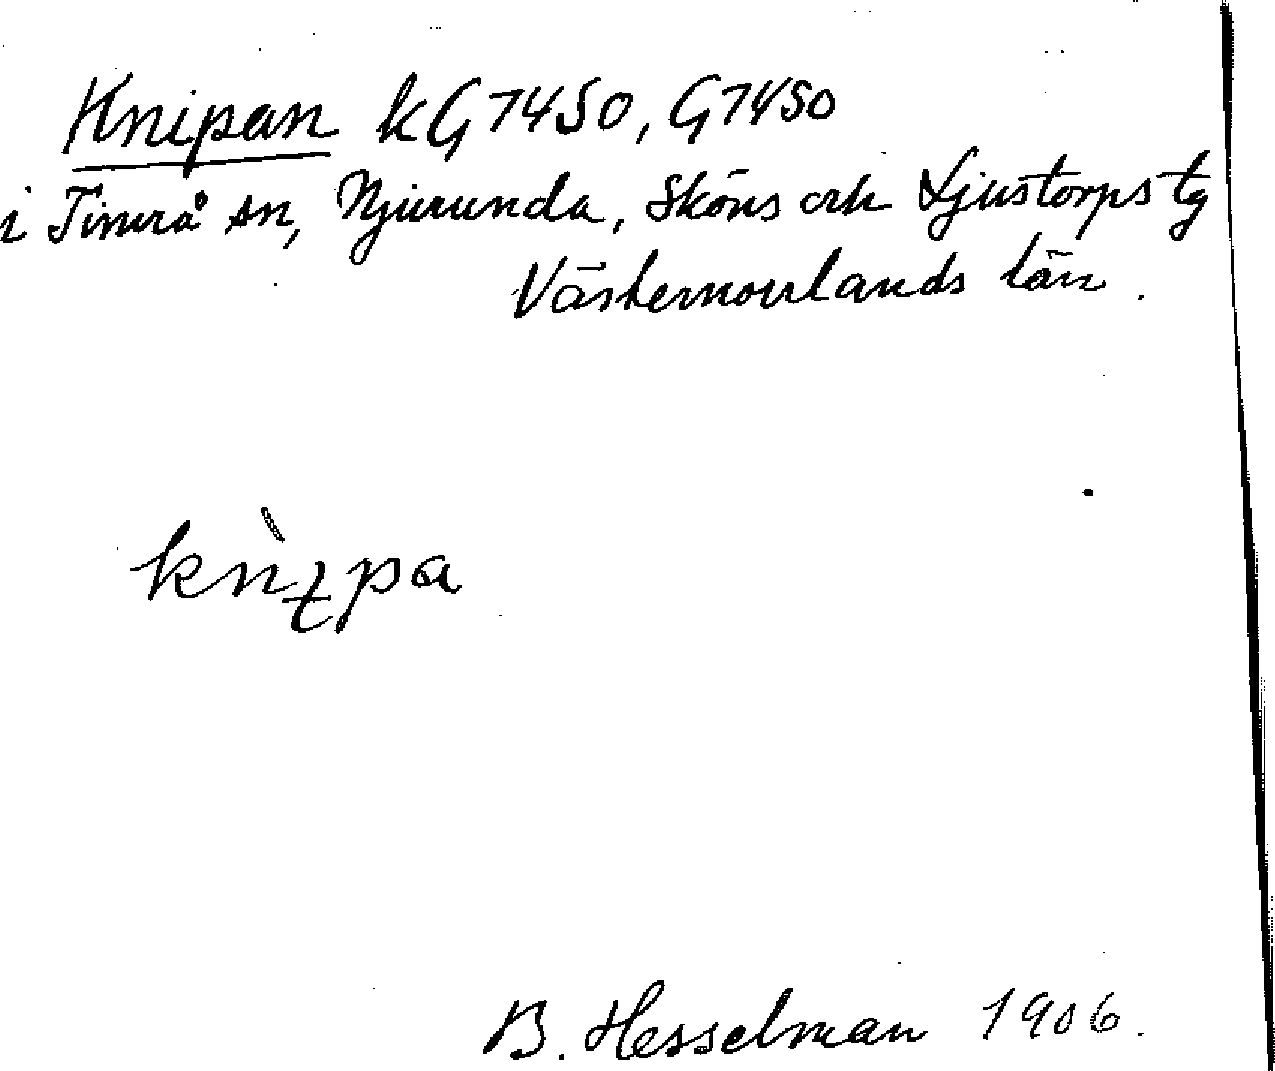 Knipan kG7450, G7450
i Timrå sn, Njurunda, Sköns och Ljustorps tg
Västernorrlands län.
B. Hesselman 1906.